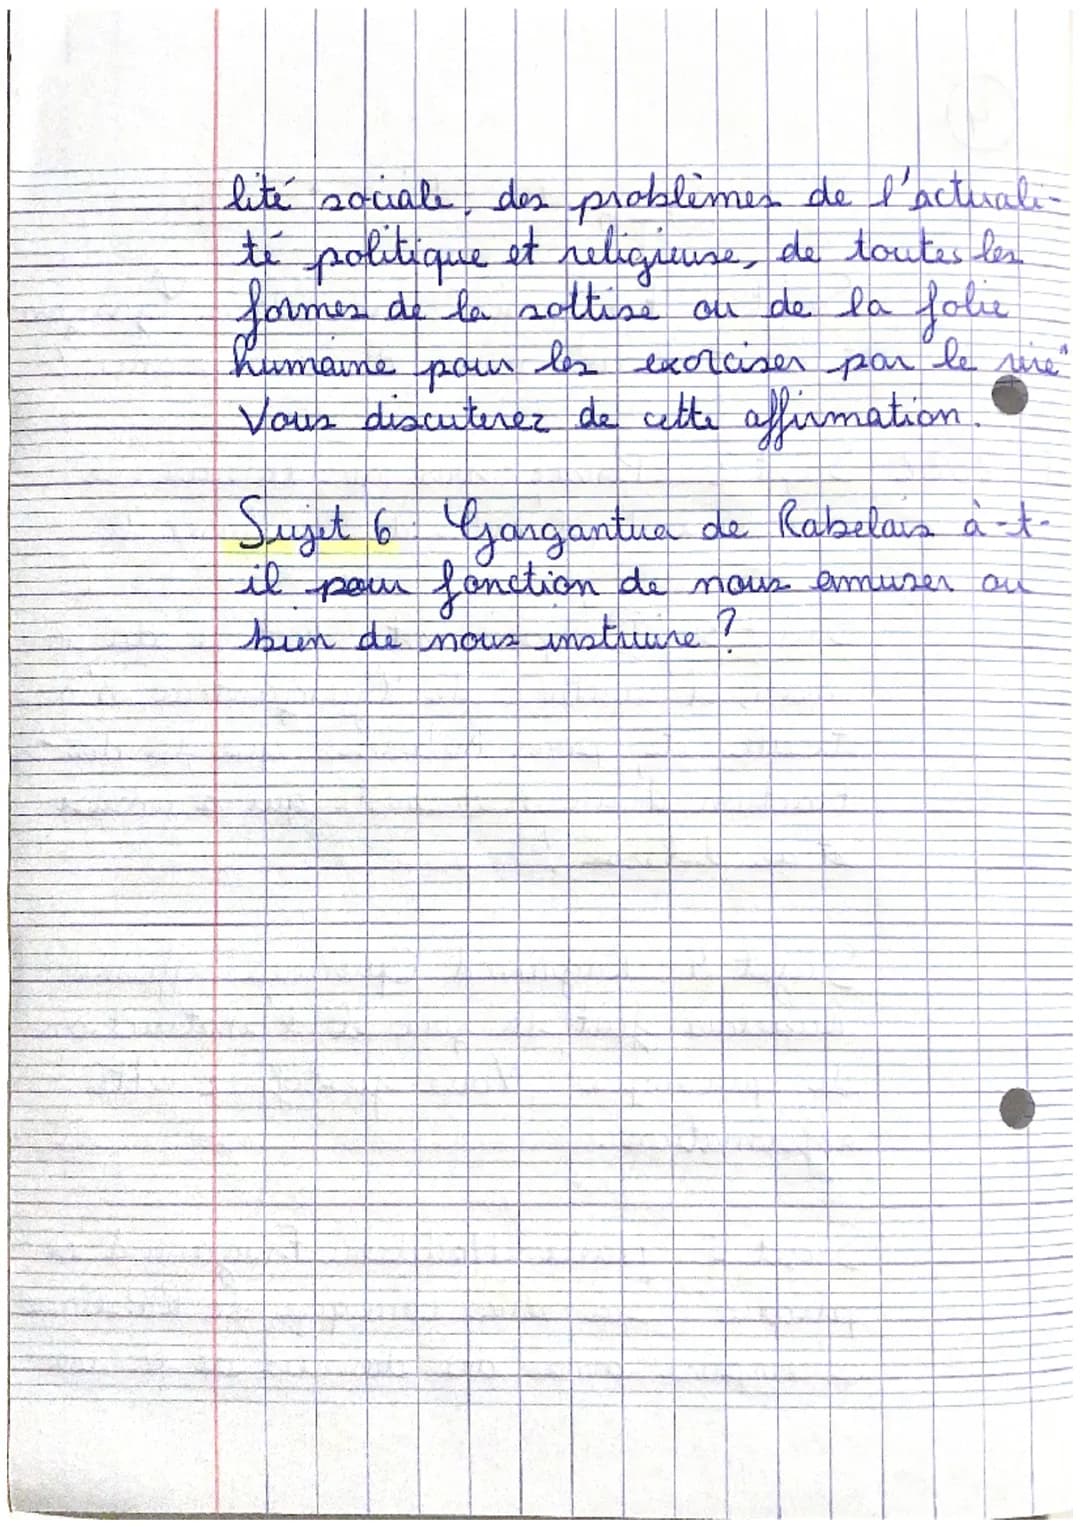 lité sociale, des problèmes de l'actuali-
té politique et religieuse, de toutes les
formes de la sottise ou de la folie
humaine pour les exorciser par le rire"
Vous discuterez de cette affirmation.
Sujet 6 Gargantua de Rabelais à-t-
il pour fonction de nous amuser ou
bien de nous instruire ?